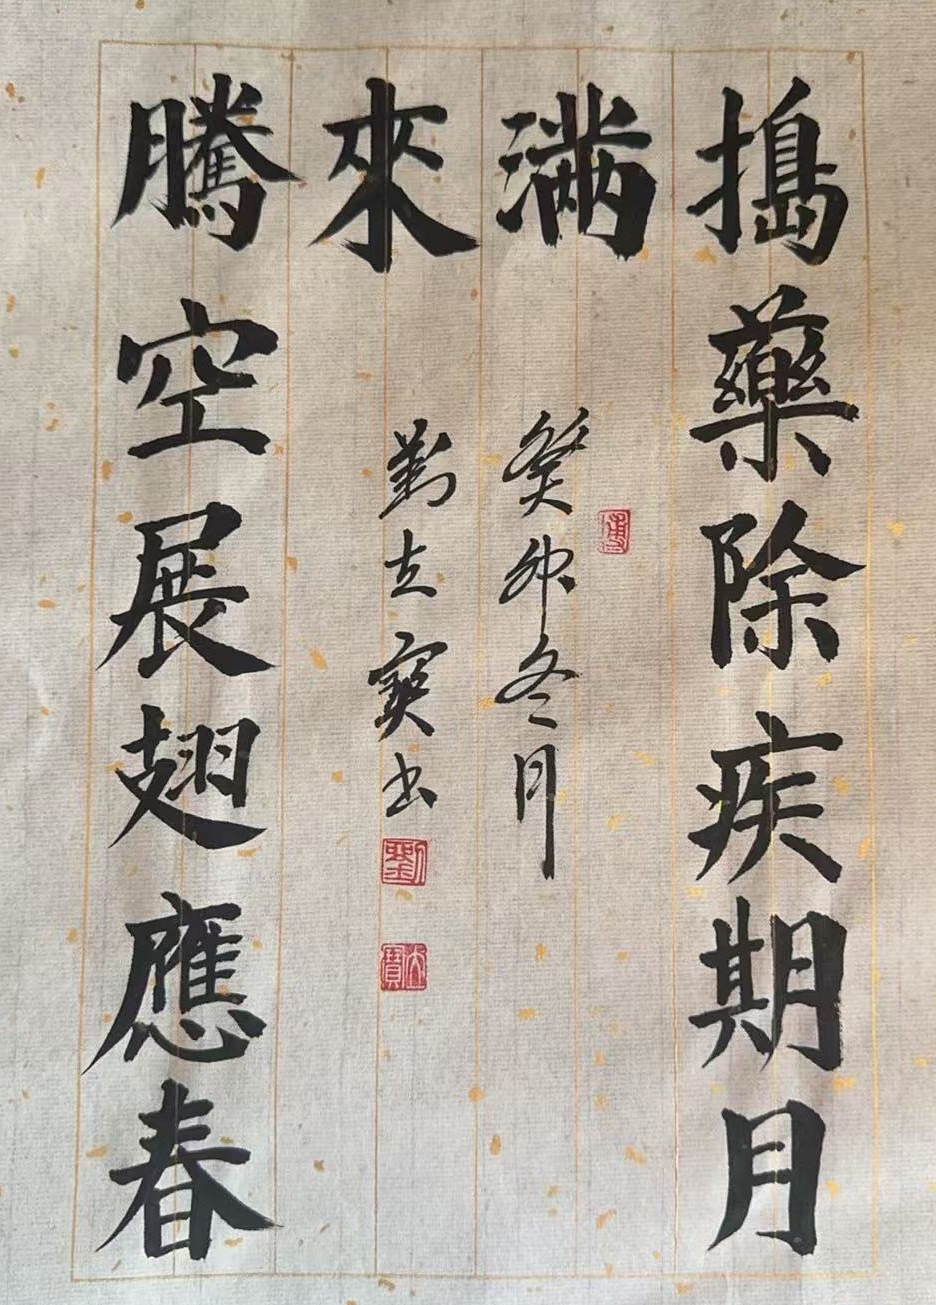 搗藥除疾期月
滿
騰空展翅應春
來
癸卯冬月
劉立寶書